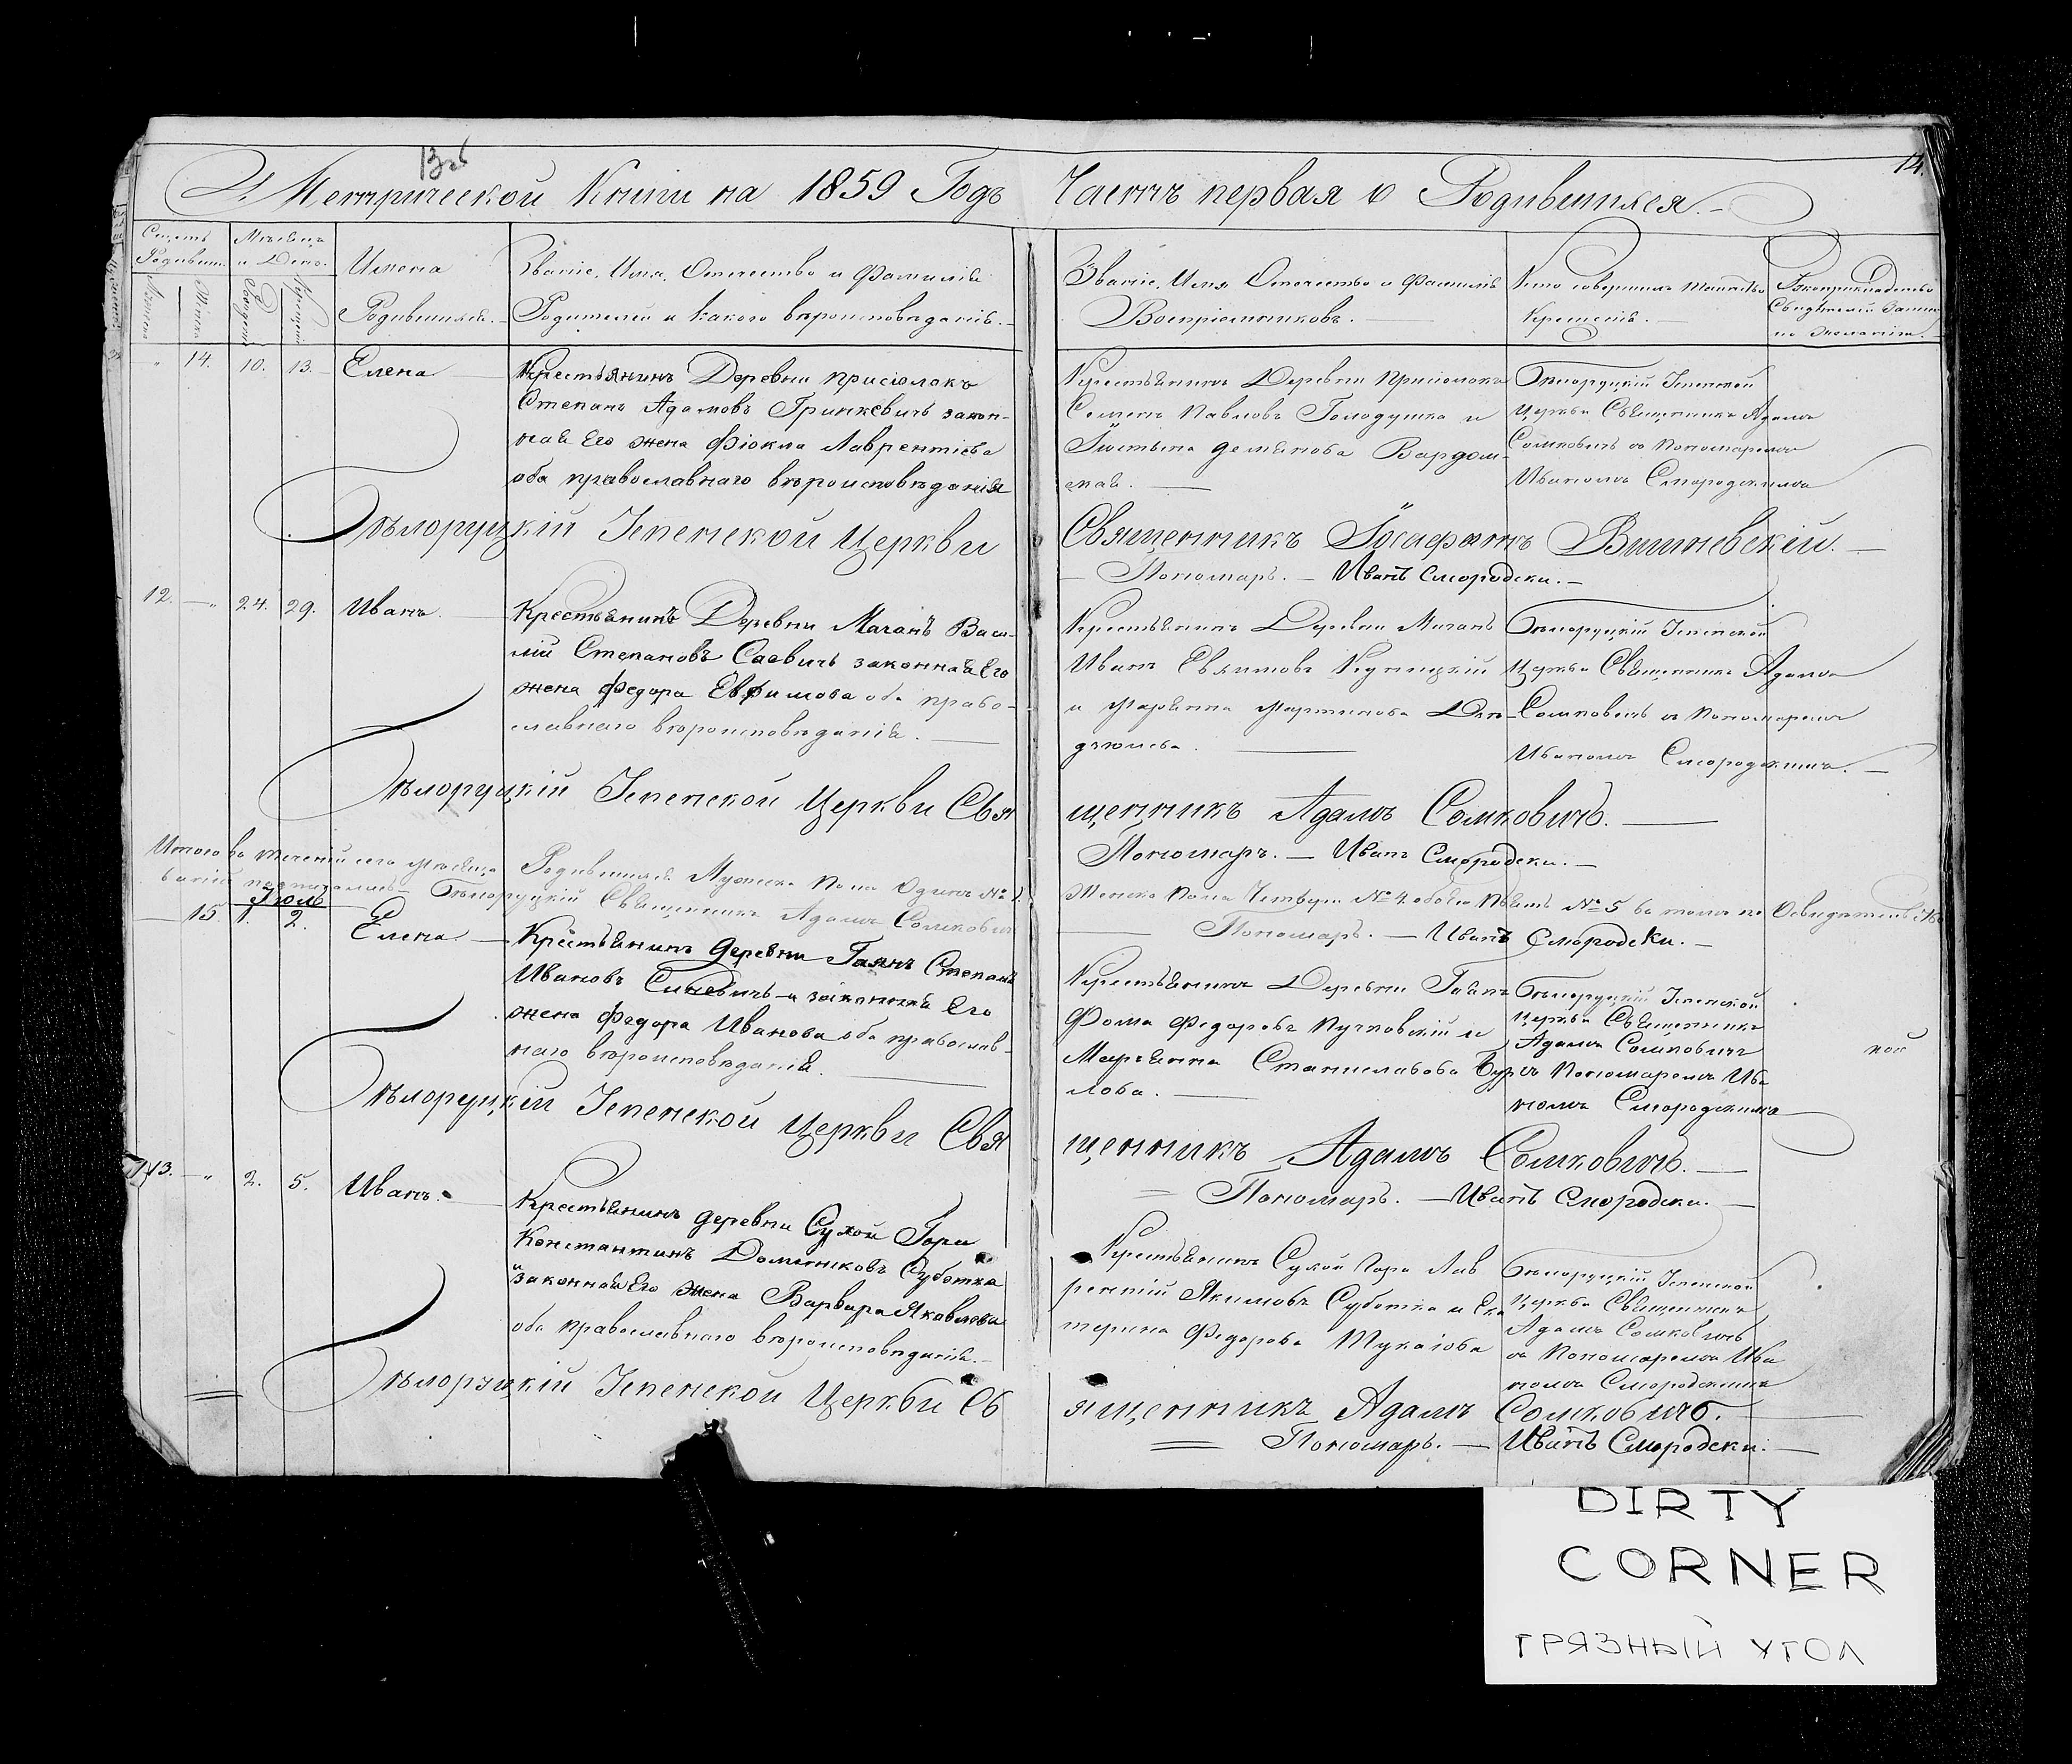 13об
14.
Метрической Книги на 1859 Годъ Часть первая о Родившихся.
Счетъ Родивших.
Мѣсяцъ и День.
Мужеска
Женска
Рожденія
Крещенія
Имена
Родившихся.
Званіе, Имя, Отечество и Фамилія
Родителей и Какого вѣроисповѣданія.
Званіе, Имя Отечество и Фамилія
Воспріемниковъ.
Кто совершилъ таинство
Крещенія.
Рукоприкладство
Свидѣтелей Записи
по желанію.
" 14. 10. 13. Елена
Крестьянинъ Деревни Присіолокъ
Степанъ Адамовъ Гринкевичъ закон-
ная Его жена Фіокла Лаврентіева
оба православнаго вѣроисповѣданія
Крестьянинъ Деревни Присіолокъ
Семенъ Павловъ Голодушка и
Юстына Демянова Вардом-
ская.
Бѣлоруцкій Успенской
Церкви Священникъ Адамъ
Сомковичъ съ Пономаремъ
Иваномъ Смородскимъ
Бѣлоруцкій Успенской Церкви Священникъ Іосафатъ Вишневскій.
Пономарь. — Иванъ Смородски.
12. — " 24. 29. Иванъ
Крестьянинъ Деревни Мачанъ Васи-
лій Степановъ Саевичъ законная Его
жена Федора Евфимова оба право-
славнаго вѣроисповѣданія.
Крестьянинъ Деревни Мачанъ
Иванъ Евфимовъ Куницкій
и Марьянна Мартинова
Бѣлоруцкій Успенской
Церкви Священникъ Адамъ
Сомковичъ съ Пономаремъ
Иваномъ Смородскимъ.
Бѣлоруцкій Успенской Церкви Священникъ Адамъ Сомковичъ.
Пономарь. — Иванъ Смородски.
Итого въ теченіи сего мѣсяца Родившихся Мужеска Пола Одинъ № 1.
Женска Пола Четыри № 4 обоего Пять № 5 въ томъ по Освидѣтельство
ваніи подписались Бѣлоруцкій Священникъ Адамъ Сомковичъ
Пономарь. — Иванъ Смородски.
Іюль
— 15. 1. 2. Елена
Крестьянинъ Деревни Гаянъ Степанъ
Ивановъ Синевичъ и законная Его
жена Федора Иванова оба православ-
наго вѣроисповѣданія.
Крестьянинъ Деревни Гаянъ
Фома Федоровъ Пучковскій и
Марьянна Станиславова Бур
лова.
Бѣлоруцкій Успенской
Церкви Священникъ
Адамъ Сомковичъ
съ Пономаремъ Ива
номъ Смородскимъ
Бѣлоруцкій Успенской Церкви Священникъ Адамъ Сомковичъ.
Пономарь. — Иванъ Смородски.
13. — " 2. 5. Иванъ.
Крестьянинъ деревни Сухой Гори
Константинъ Доминиковъ Суботка
и законная Его жена Варвара Яковлева
оба Православнаго вѣроисповѣданія.
Крестьянинъ Сухой Гори Лав
рентій Якимовъ Суботка и Ека
терина Федорова Тукаіова
Бѣлоруцкій Успенской
Церкви Священникъ
Адамъ Сомковичъ
съ Пономаремъ Ива
номъ Смородскимъ
Бѣлоруцкій Успенской Церкви Священникъ Адамъ Сомковичъ.
Пономарь. — Иванъ Смородски.
DIRTY
CORNER
ГРЯЗНЫЙ УГОЛ